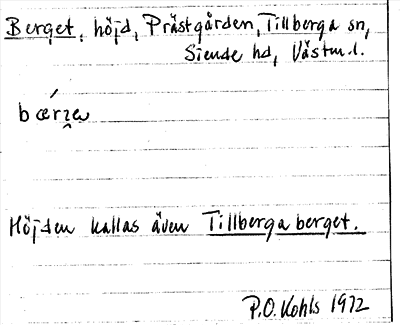 Berget, höjd, Prästgården, Tillberga sn,
Siende hd, Västm.l.
Höjden kallas även Tillberga berget.
P.O. Kohls 1972